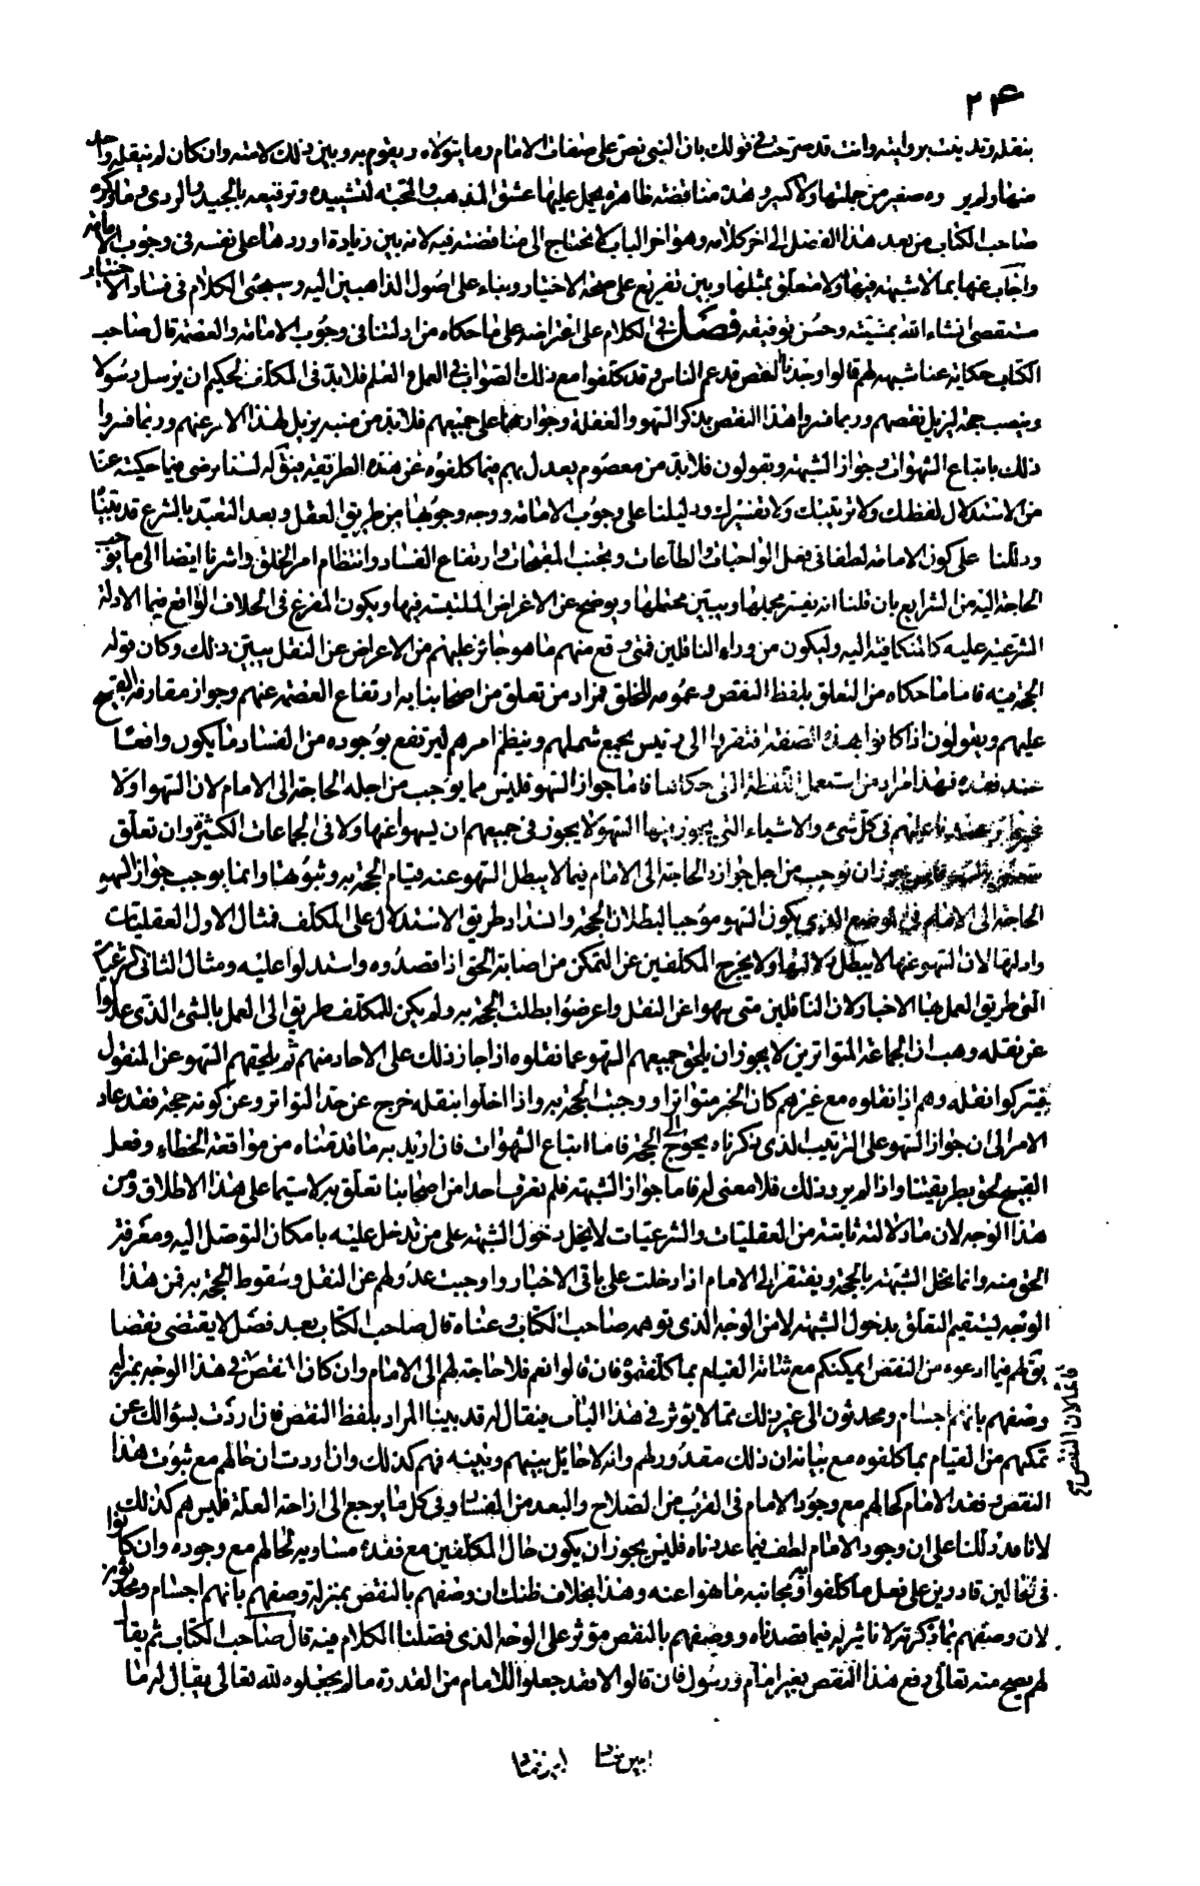 ٢٤
بنقله وتديّنت بروايته وانت قد صرحت في قولك بان النبي نص على صفات الامام وما يتولاه ويقوم به وبين ذلك لامته وان كان لم ينقله واحد
منها ولم يروه صغير من جملتها ولا كبير وهذه مناقضة ظاهرة يحمل عليها عشق المذهب والمحبة لتشييده وترقيعه بالجيد والردى وما ذكره
صاحب الكتاب من بعد هذا الفصل الى اخر كلامه وهو اخر الباب لا نحتاج الى مناقضته فيه لانه بين زيادة اوردها على نفسه في وجوب الامامة
واجاب عنها بما لا شبهة فيها ولا متعلق بمثلها وبين تفريع على صحة الاختيار وبناء على اصول الذاهبين اليه وسيجئ الكلام في فساد الاختيار
مستقصى انشاء الله بمشيته وحسن توفيقه فصل في الكلام على اعتراضه على ما حكاه من ادلتنا في وجوب الامامة والعصمة قال صاحب
الكتاب حكاية عنا شبهة لهم قالوا وجدنا النقص قد عم الناس وقد كلفوا مع ذلك الصواب في العمل والعلم فلا بد في المكلف الحكيم ان يرسل رسولا
وينصب حجة ليزيل نقصهم وربما فسروا هذا النقص بذكر السهو والغفلة وجوازهما على جميعهم فلا بد من منبه يزيل هذا الامر عنهم وربما فسروا
ذلك باتباع الشهوات وجواز الشبهة ويقولون فلا بد من معصوم يعدل بهم فيما كلفوه عن هذه الطريقة فيقال له لسنا نرضى فيما حكيته عنا
من الاستدلال لفظك ولا ترتيبك ولا تفسيرك ودليلنا على وجوب الامامة ووجه وجوبها من طريق العقل وبعد التعبد بالشرع قد بينا
ودللنا على كون الامامة لطفا في فعل الواجبات والطاعات وتجنب المقبحات وارتفاع الفساد وانتظام امر الخلق واشرنا ايضا الى ما يوجب
الحاجة اليه من الشرايع بان قلنا انه يفسر مجملها ويبين محتملها ويوضح عن الاغراض الملتبسة فيها ويكون المفزع في الخلاف الواقع فيما الادلة
الشرعية عليه كالمتكافئة اليه وليكون من وراء الناقلين فمتى وقع منهم ما هو جائز عليهم من الاعراض عن النقل بيّن ذلك وكان قوله
الحجة فيه فاما ما حكاه من التعلق بلفظ النقص وعمومه للخلق فمراد من تعلق من اصحابنا به ارتفاع العصمة عنهم وجواز مقارفة القبيح
عليهم ويقولون اذا كانوا بهذه الصفة افتقروا الى رئيس يجمع شملهم وينظم امرهم ليرتفع بوجوده من الفساد ما يكون واقعا
عند فقده فهذا مراد من استعمل اللفظة التي حكاها فاما جواز السهو فليس مما يوجب من اجله الحاجة الى الامام لان السهو اولا
عليهم في كل شئ والاشياء التي يجوز فيها السهو لا يجوز في جميعهم ان يسهوا عنها ولا في الجماعات الكثيرة وان تعلق
ان نوجب من اجل جوازه الحاجة الى الامام فيما لا يبطل السهو عنه قيام الحجة به وثبوتها وانما يوجب جواز السهو
الحاجة الى الامام في الموضع الذي يكون السهو موجبا لبطلان الحجة وانسداد طريق الاستدلال على المكلف فمثال الاول العقليات
وادلتها لان السهو عنها لا يبطل دلالتها ولا يخرج المكلفين عن التمكن من اصابة الحق اذا قصدوه واستدلوا عليه ومثال الثاني الشرعيات
التي طريق العمل بها الاخبار لان الناقلين متى سهوا عن النقل واعرضوا بطلت الحجة به ولم يكن للمكلف طريق الى العمل بالشئ الذي عدلوا
عن نقله وهب ان الجماعة المتواترين لا يجوز ان يلحق جميعهم السهو عما نقلوه اذا جاز ذلك على الاحاد منهم ثم يلحقهم السهو عن المنقول
فيتركوا نقله وهم اذا نقلوه مع غيرهم كان الخبر متواترا ووجبت الحجة به واذا اخلوا بنقله خرج عن حد التواتر وعن كونه حجة فقد عاد
الامر الى ان جواز السهو على الترتيب الذي ذكرناه يحوج الى الحجة فاما اتباع الشهوات فان اريد به ما قدمناه من مواقعة الخطاء وفعل
القبيح لحق بطريقتنا واذا لم يرد ذلك فلا معنى له فاما جواز الشبهة فلم نعرف احدا من اصحابنا تعلق به لا سيما على هذا الاطلاق ومن
هذا الوجه لان ما دلالته ثابتة من العقليات والشرعيات لا يخل دخول الشبهة على من تدخل عليه بامكان التوصل اليه ومعرفة
الحق منه وانما تخل الشبهة بالحجة ويفتقر الى الامام اذا دخلت على باقي الاخبار واوجبت عدولهم عن النقل وسقوط الحجة به فمن هذا
الوجه ليستقيم التعلق بدخول الشبهة لا من الوجه الذي توهمه صاحب الكتاب وعناه قال صاحب الكتاب بعد فصل لا يقتضي نقضا
يق لهم فيما ادعوه من النقص ايمكنكم مع ثباته القيام بما كلفتموه فان قالوا نعم فلا حاجة لهم الى الامام وان كان النقص في هذا الوجه بمنزلة
وصفهم بانهم اجسام ومحدثون الى غير ذلك مما لا يؤثر في هذا الباب فيقال له قد بينا المراد بلفظ النقص فان اردت بسؤالك عن
تمكنهم من القيام بما كلفوه مع ثباته ان ذلك مقدور لهم وانه لا حايل بينهم وبينه فهم كذلك وان اردت ان حالهم مع ثبوت هذا
النقص وفقد الامام كحالهم مع وجود الامام في القرب من الصلاح والبعد من الفساد وفي كل ما يرجع الى ازاحة العلة فليس هم كذلك
لانا قد دللنا على ان وجود الامام لطف فيما عددناه فليس يجوز ان يكون حال المكلفين مع فقده مساوية لحالهم مع وجوده وان كانوا
في الحالين قادرين على فعل ما كلفوا ومجانبة ما نهوا عنه وهذا بخلاف ظنك ان وصفهم بالنقص بمنزلة وصفهم بانهم اجسام ومحدثون
لان وصفهم بما ذكرته لا تاثير له فيما قصدناه ووصفهم بالنقص مؤثر على الوجه الذي فصلنا الكلام فيه قال صاحب الكتاب ثم يقال
لهم يصح منه تعالى رفع هذا النقص بغير امام ورسول فان قالوا لا فقد جعلوا للامام من القدرة ما لم يجعلوه لله تعالى يقال له ما